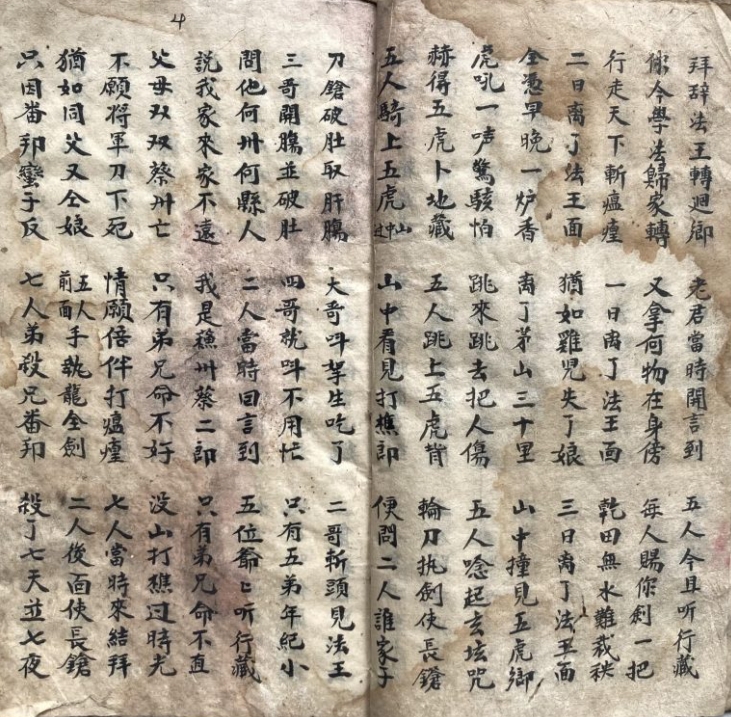 拜辞法王轉廻鄉 老君當時開言到 五人今且听行藏
你今學法歸家轉 又拿何物在身傍 每人賜你剑一把
行走天下斬瘟瘴 一日离了法王面 乾田無水難栽秧
二日离了法王面 猶如雞兒失了娘 三日离了法王面
全憑早晚一炉香 离了茅山三十里 山中撞見五虎鄉
虎吼一声驚駭怕 跳來跳去把人傷 五人唸起玄坛咒
赫得五虎卜地藏 五人跳上五虎背 輪刀执劍使長鎗
五人騎上五虎山中过 山中看見打樵郎 便問二人誰家子
刀鎗破肚取肝腸 大哥呌拏生吃了 二哥斬頭見法王
三哥開膓並破肚 四哥就呌不用忙 只有五弟年紀小
問他何州何縣人 二人當時回言到 五位爺〻听行藏
說我家來家不遠 我是蘓州蔡二郎 只有弟兄命不直
父母双双蔡州亡 只有弟兄命不好 没山打樵过時光
不願将軍刀下死 情願倍伴打瘟瘴 七人當時來結拜
猶如同父又仝娘 前面五人手执龍全劍 二人後面使長鎗
只因番邦蠻子反 七人弟殺兄番邦 殺了七天並七夜